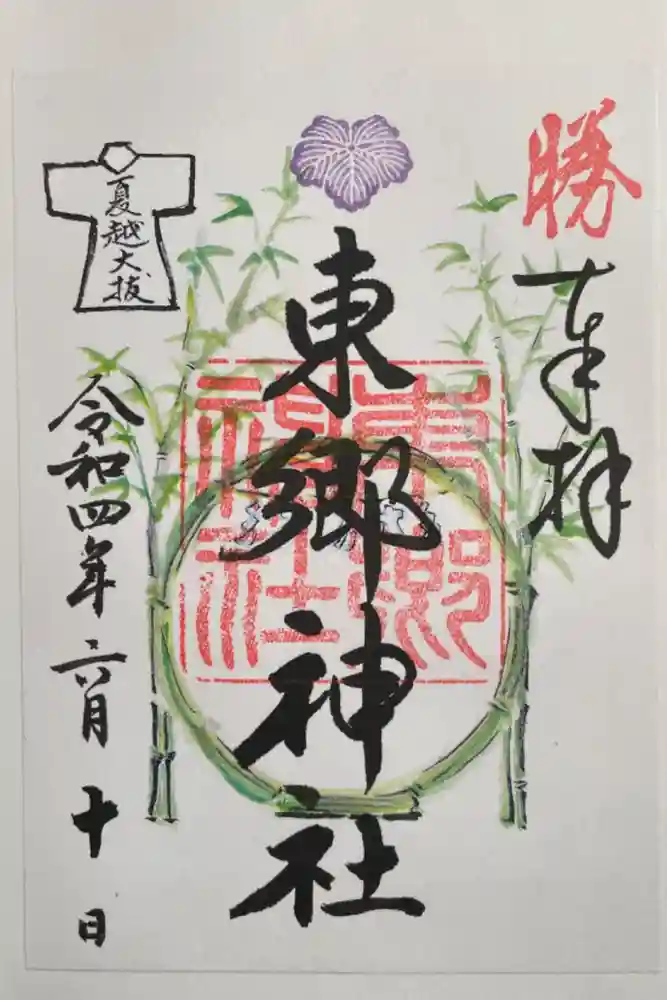 勝
奉拝
東郷神社
東郷
神社
夏越大祓
令和四年六月十日